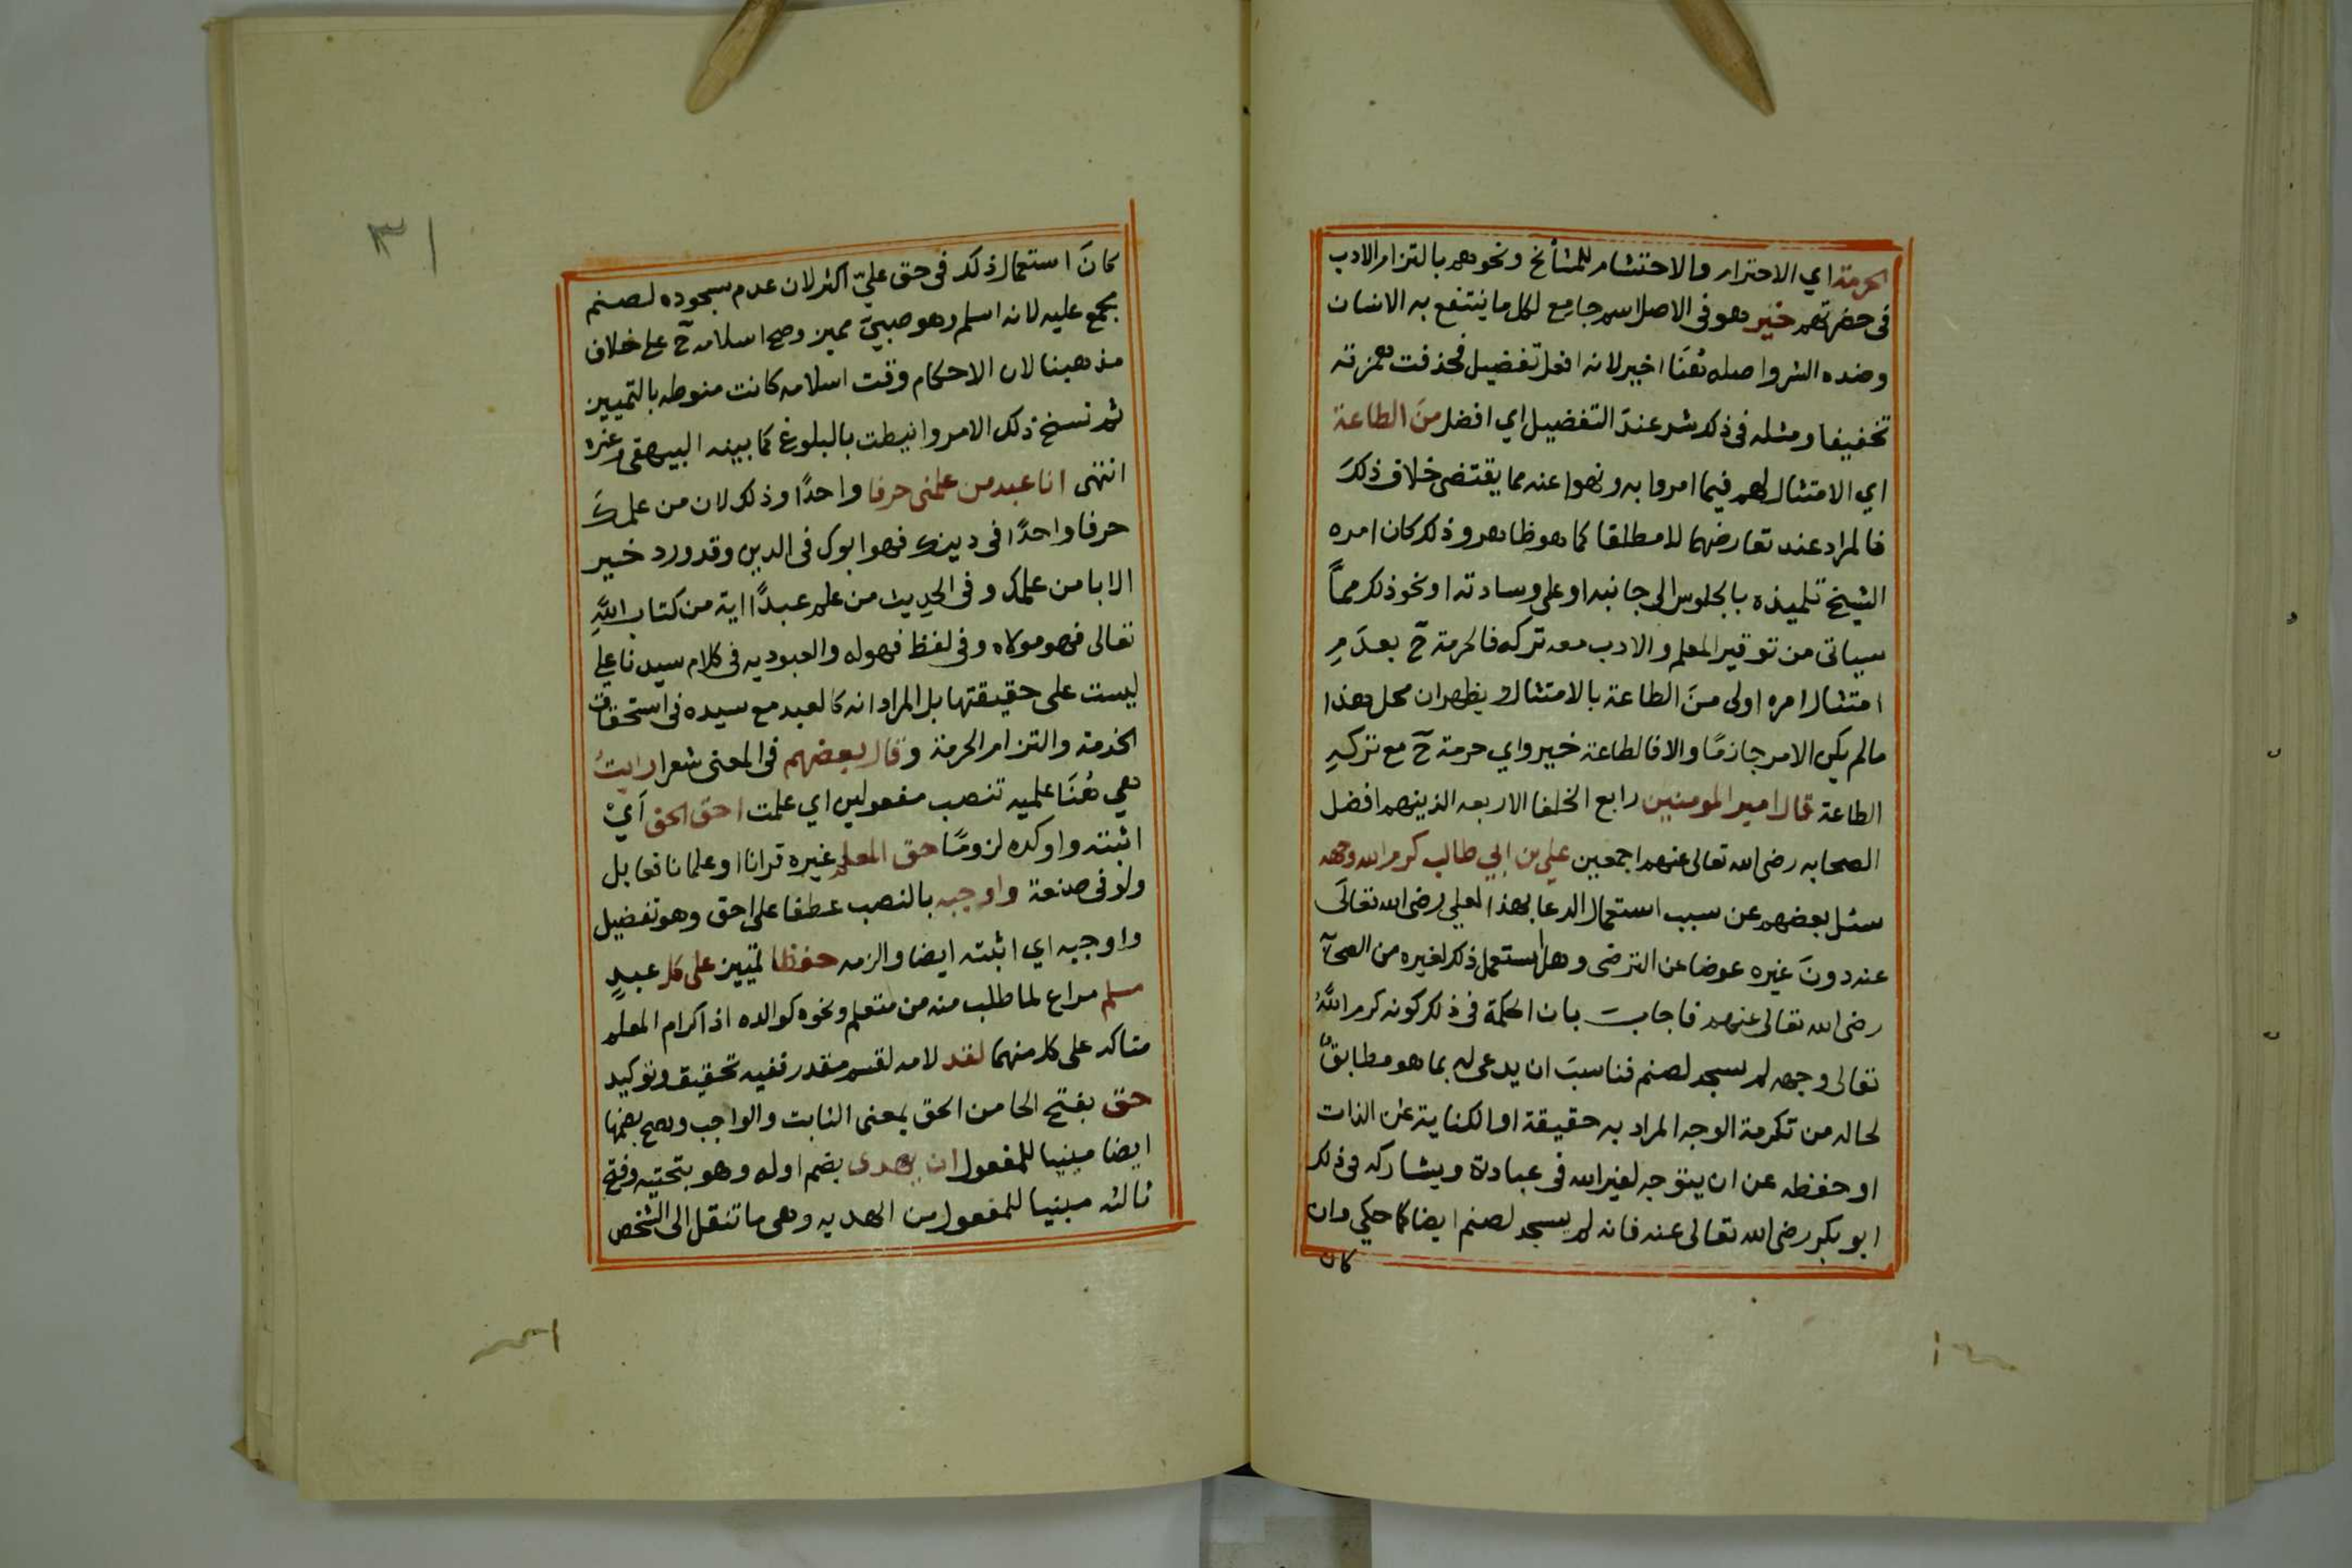 الحرمة اي الاحترام والاحتشام للمشائخ ونحوهم بالتزام الادب
فى حضرتهم خير هو فى الاصل اسم جامع لكل ما ينتفع به الانسان
وضده الشر واصله هُنَا اخير لانه افعل تفضيل فحذفت همزته
تخفيفا ومثله فى ذلك شر عند التفضيل اي افضل من الطاعة
اي الامتثال لهم فيما امروا به ونهوا عنه مما يقتضى خلاف ذلكَ
فالمراد عند تعارضهما لا مطلقا كما هو ظاهر وذلك كان امره
الشيخ تلميذه بالجلوس الى جانبه او على وسادته او نحو ذلك مماً
سياتى من توقير المعلم والادب معه تركه فالحرمة ح بعدَمِ
امتثال امره اولى منَ الطاعة بالامتثال ويظهر ان محل هذا
مالم يكن الامر جازمًا والا فالطاعة خير واي حرمة ح مع ترك
الطاعة قال امير المومنين رابع الخلفا الاربعه الذين هم افضل
الصحابه رضى الله تعالى عنهم اجمعين علي بن ابي طالب كرم الله وجهه
سئل بعضهم عن سبب استعمال الدعا بهذا لعلي رضى الله تعالَى
عنه دونَ غيره عوضا عن الترضى وهل يستعمل ذلك لغيره من الصحآ
رضى الله تعالى عنهم فاجاب بان الحكمة فى ذلك كونه كرم اللّهُ
تعالى وجهه لم يسجد لصنم فناسبَ ان يدعى له بما هو مطابق
لحاله من تكرمة الوجه المراد به حقيقة او الكناية عن الذات
او حفظه عن ان يتوجه لغير الله فى عبادة ويشاركه فى ذلك
ابو بكر رضى الله تعالى عنه فانه لم يسجد لصنم ايضا كما حكي وان
كان
٣١
كانَ استعمال ذلك فى حق عليّ اكثر لان عدم سجوده لصنم
مجمع عليه لانه اسلم وهو صبيّ مميز وصح اسلامه ح على خلاف
مذهبنا لان الاحكام وقت اسلامه كانت منوطه بالتمييز
ثم نسخ ذلك الامر وانيطت بالبلوغ كما بينه البيهقى وغيره
انتهى انا عبد من علمنى حرفا واحدًا وذلك لان من علمكَ
حرفا واحدًا فى دينك فهو ابوك فى الدين وقد ورد خير
الابا من علمك وفى الحديث من علم عبدًا اية من كتاب اللّهِ
تعالى فهو مولاه وفى لفظ فهو له والعبوديه فى كلام سيدنا علي
ليست على حقيقتها بل المراد انه كالعبد مع سيده فى استحقاق
الخدمة والتزام الحرمة وقال بعضهم فى المعنى شعرا رايتُ
هى هُنَا علميه تنصب مفعولين اي علمت احق الحق اَيْ
اثبته واوكده لزومًا حق المعلم غيره قرانا او علما نافعا بل
ولو فى صنعة واوجبه بالنصب عطفا على احق وهو تفضيل
واوجبه اي اثبته ايضا والزمه حفظا تمييز على كل عبدٍ
مسلم مراع لما طلب منه من متعلم ونحوه كوالده اذ اكرام المعلم
متاكد على كل منهما لقد لامه لقسم مقدر ففيه تحقيق وتوكيد
حق بفتح الحا من الحق بمعنى الثابت والواجب ويصح بضمها
ايضا مبنيا للمفعول ان يهدى بضم اوله وهو بتحتيه وفتح
ثالثه مبنيا للمفعول من الهديه وهى ما تنقل الى الشخص